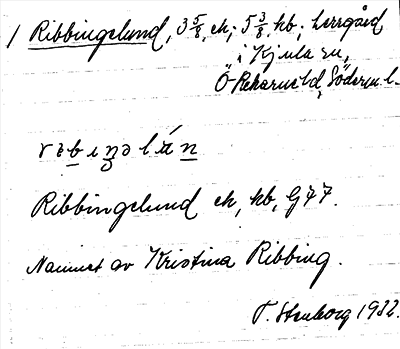 1 Ribbingelund, 3 5/8, ek; 5 3/8, kb; herrgård
i Kjula sn,
Ö Rekarne hd, Söderm. l.
Ribbingelund ek, kb, G77.
Namnet av Kristina Ribbing.
T. Stenborg 1932.